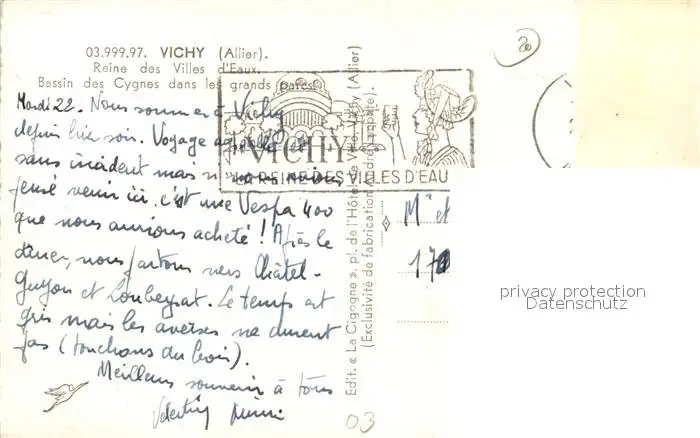 03.999.97. VICHY (Allier).
Reine des Villes d'Eaux.
Bassin des Cygnes dans les grands parcs.
Mardi 22. Nous sommes à Vichy
depuis hier soir. Voyage agréable et
sans incident mais si nous avions
pensé venir ici. c'est une Vespa 400
que nous aurions acheté ! Après le
dîner, nous partons vers Châtel-
Guyon et Loubeyrat. Le temps est
gris mais les averses ne durent
pas (touchons du bois).
Meilleurs souvenirs à tous
VICHY
LA REINE DES VILLES D'EAU
Edit. « La Cigogne », pl. de l'Hôtel de Ville, Vichy (Allier)
(Exclusivité de fabrication André
M et
20
03
privacy protection
Datenschutz